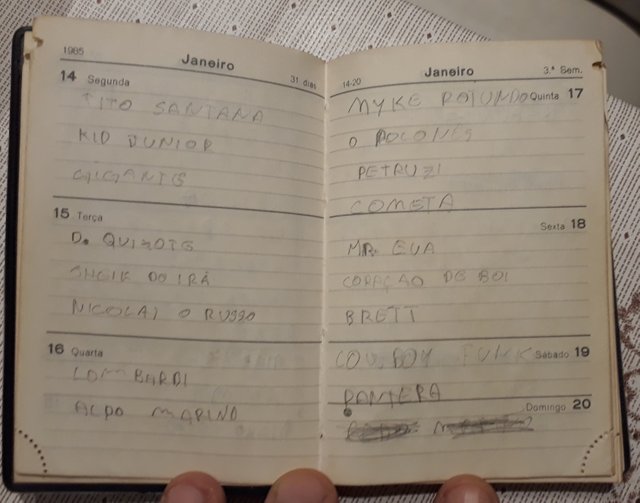 1985 Janeiro 31 dias
14 Segunda
TITO SANTANA
KID JUNIOR
GIGANTE
15 Terça
D. QUIXOTE
SHEIK DO IRÃ
NICOLAI O RUSSO
16 Quarta
LOMBARDI
ALDO MARINO
14-20 Janeiro 3.ª Sem.
MYKE ROTUNDO Quinta 17
O POLONÊS
PETRUZI
COMETA
Sexta 18
MR. EUA
CORAÇÃO DE BOI
BRETT
COWBOY FUNK Sábado 19
PANTERA
Domingo 20